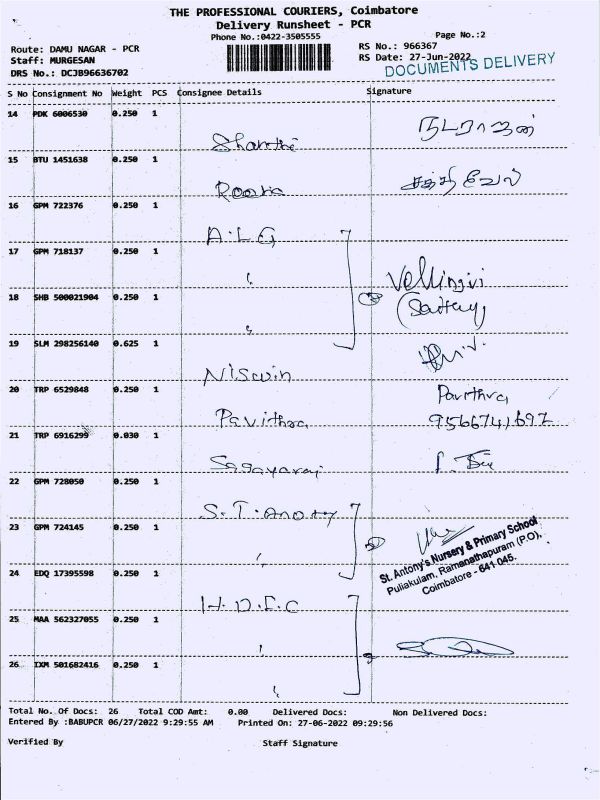 THE PROFESSIONAL COURIERS, Coimbatore
Delivery Runsheet - PCR
Phone No.:0422-3505555
Page No.:2
Route: DAMU NAGAR - PCR
RS No.: 966367
Staff: MURGESAN
RS Date: 27-Jun-2022
DRS No.: DCJB96636702
DOCUMENTS DELIVERY
S No Consignment No Weight PCS Consignee Details Signature
14 PDK 6006530 0.250 1
Shanthi நடராஜன்
15 BTU 1451638 0.250 1
சக்திவேல்
16 GPM 722376 0.250 1
A.L.G
17 GPM 718137 0.250 1
"
Vellingiri
18 SHB 500021904 0.250 1
"
19 SLM 298256140 0.625 1
Niswin
20 TRP 6529848 0.250 1
Pavithra
Pavithra
9566741697
21 TRP 6916299 0.030 1
Sagayaraj
22 GPM 728050 0.250 1
S.T. Anony
23 GPM 724145 0.250 1
"
St. Antony's Nursery & Primary School
Puliakulam, Ramanathapuram (P.O),
Coimbatore - 641 045.
24 EDQ 17395598 0.250 1
H.D.F.C
25 MAA 562327055 0.250 1
"
26 IXM 501682416 0.250 1
"
Total No. Of Docs: 26 Total COD Amt: 0.00 Delivered Docs: Non Delivered Docs:
Entered By :BABUPCR 06/27/2022 9:29:55 AM Printed On: 27-06-2022 09:29:56
Verified By Staff Signature